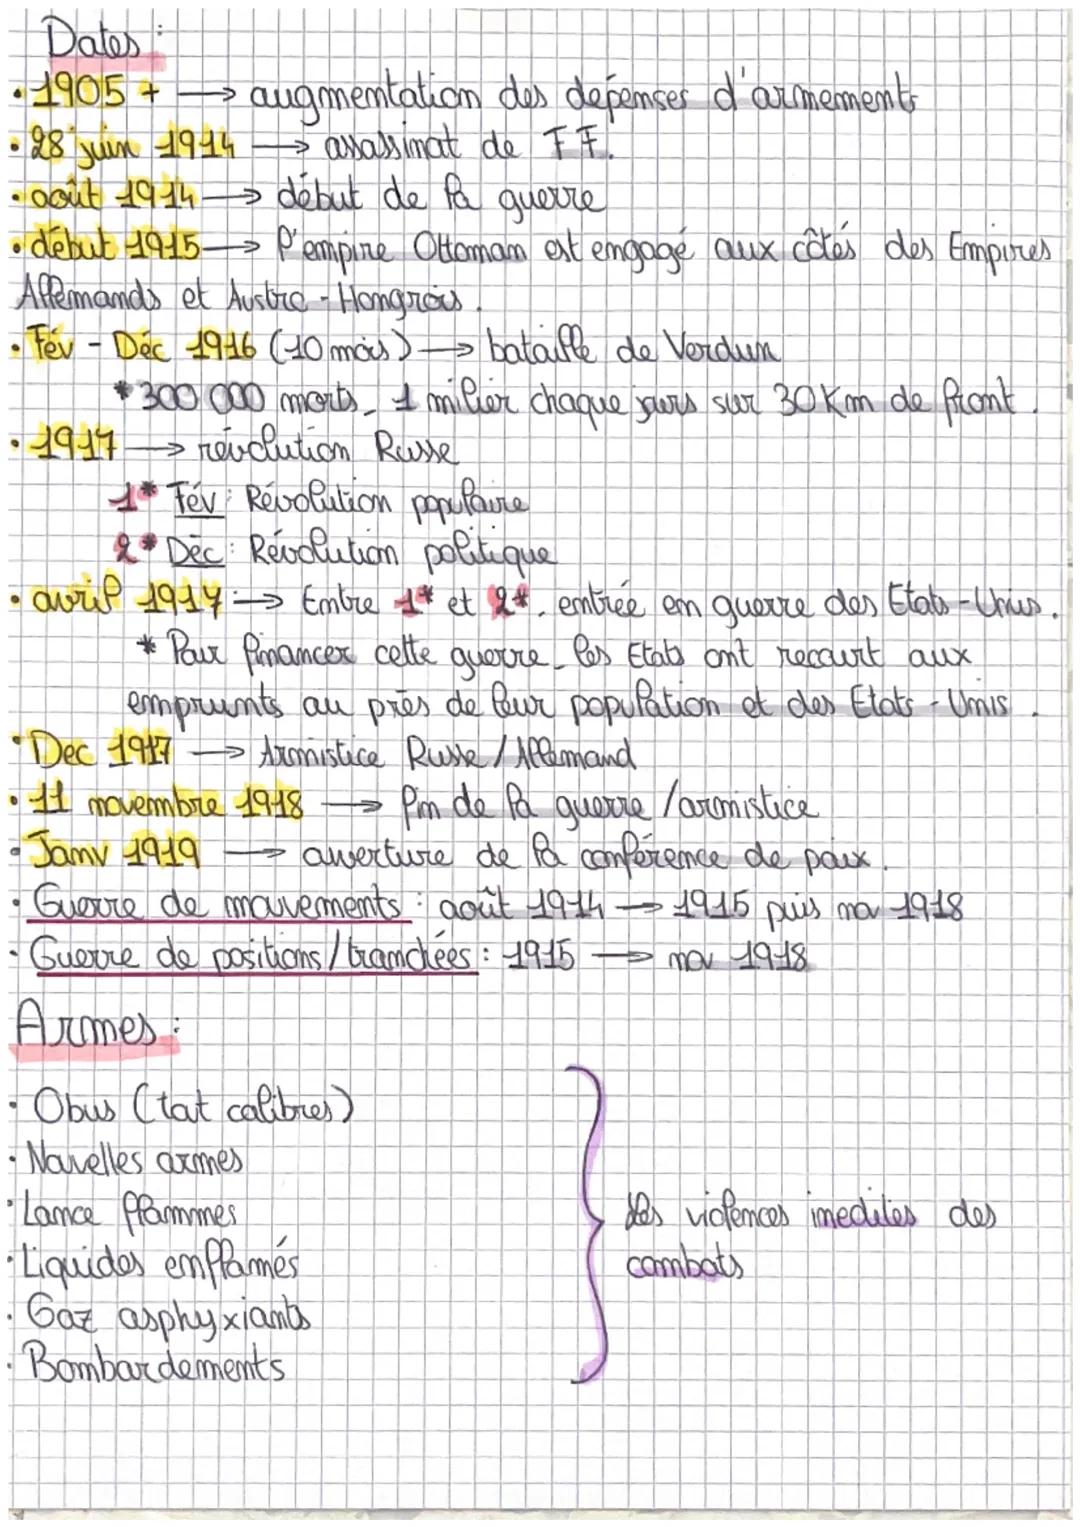 Dates :
• 1905 + → augmentation des depenses d'armements
• 28 juin 1914 → assassinat de F F.
• août 1914 → début de la guerre
• début 1915 → l'empire Ottoman est engagé aux côtés des Empires
Allemands et Austro-Hongrois.
• Fév - Déc 1916 (10 mois) → bataille de Verdun
* 300 000 morts, 1 milier chaque jours sur 30 Km de front.
• 1917 → révolution Russe
1* Fév : Révolution populaire
2* Déc : Révolution politique
• avril 1917 → Entre 1* et 2*, entrée en guerre des Etats-Unis.
* Pour financer cette guerre, les Etats ont recourt aux
emprunts au près de leur population et des Etats-Unis.
• Dec 1917 → Armistice Russe / Allemand
• 11 novembre 1918 → fin de la guerre / armistice
• Janv 1919 → ouverture de la conférence de paix.
• Guerre de mouvements : août 1914 → 1915 puis nov 1918
• Guerre de positions / tranchées : 1915 → nov 1918
Armes :
• Obus (tout calibres)
• Nouvelles armes
• Lance flammes
• Liquides enflamés
Des violences inedites des
combats
• Gaz asphyxiants
• Bombardements